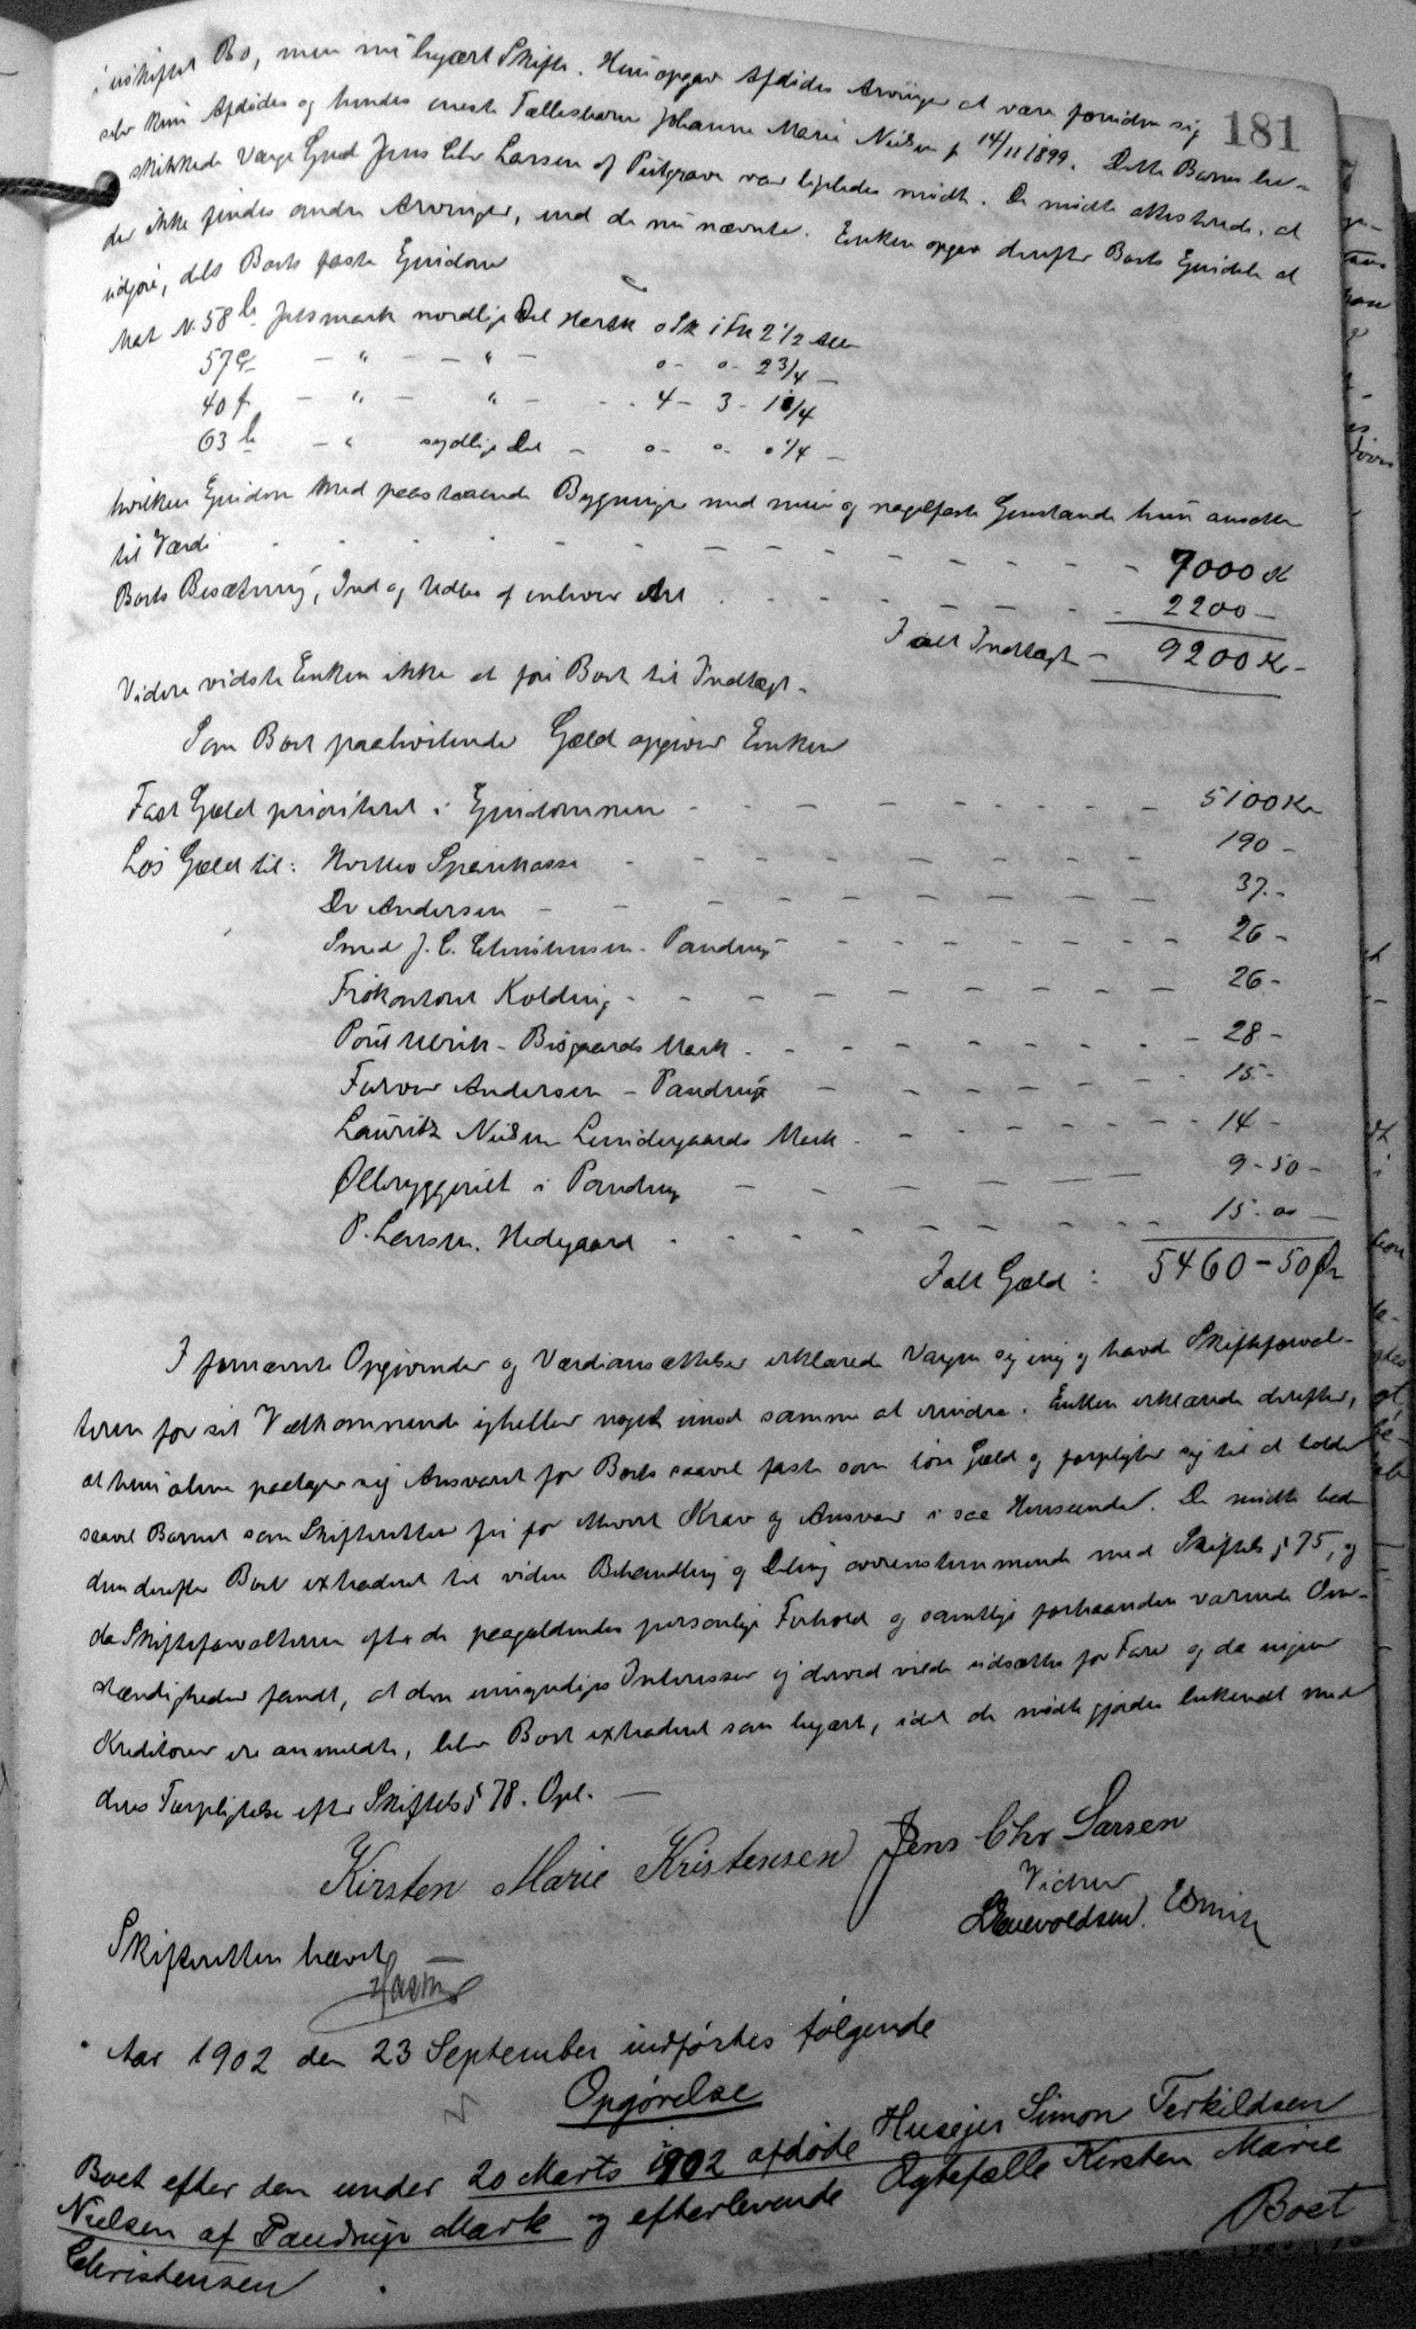 181
i uskiftet Bo, men nu begært Skifte. Hun opgav Afdødes Arvinger at være foruden sig
selv kun Afdødes og hendes eneste Fællesbarn Johanne Marie Nielsen f 14/11 1899. Dette Barns be-
skikkede Værge Gmd Jens Chr Larsen af Pulsgrave var ligeledes mødt. De mødte attesterede, at
der ikke findes andre Arvinger, end de nu nævnte. Enken opgav derefter Boets Ejendele at
udgøre, dels Boets faste Ejendom
Mat N. 58 b Jetsmark nordlige Del Hartk 0 Sk 1 Fk 2 1/2 Alb
57 e - " - - " - 0 - 0 - 2 3/4 -
40 f - " - " - - - 4 - 3 - 1 1/4
63 b - " sydlige Del - 0 - 0 - 0 1/4 -
hvilken Ejendom med paastaaende Bygninger med mur og nagelfaste Genstande hun ansatte
til Værdi - - - 7000 K
Boets Besætning, Ind og Udbo af enhver Art - - - 2200 -
I alt Indtægt - 9200 Kr -
Videre vidste Enken ikke at føre Boet til Indtægt.
Som Boet paahvilende Gæld opgiver Enken
Fast Gæld prioriteret i Ejendommen - - - 5100 Kr
Løs Gæld til: Hvetbo Sparekasse - - - 190 -
Dr Andersen - - - 37 -
Smed J. C. Christensen - Pandrup - - - 26 -
Frøkontoret Kolding - - - 26 -
Poul Ulrik - Bisgaards Mark - - - 28 -
Farver Andersen - Pandrup - - - 15 -
Lauritz Nielsen Lundergaards Mark - - - 14 -
Ølbryggeriet i Pandrup - - - 9 - 50 -
P. Larsen. Hedegaard - - - 15 - 00 -
Ialt Gæld : 5460 - 50 Ør
I fornævnte Opgivender og Værdiansættelser erklærede Værgen sig enig og havde Skifteforval-
teren for sit Vedkommende ejheller noget imod samme at erindre. Enken erklærede derefter,
at hun alene paatager sig Ansvaret for Boets saavel faste som løse Gæld og forpligter sig til at holde
saavel Barnet som Skifteretten fri for ethvert Krav og Ansvar i saa Henseende. De mødte bad
dem derefter Boet extraderet til videre Behandling og Deling overensstemmende med Skiftels § 75, og
da Skifteforvalteren efter de paagældendes personlige Forhold og samtlige forhaanden værende Om-
stændigheder fandt, at den umyndiges Interesser ej derved vilde udsættes for Fare og da ingen
Kreditorer ere anmeldte, blev Boet extraderet som begært, idet de mødte gjordes bekendt med
deres Forpligtelse efter Skiftels § 78. Opl. -
Kirsten Marie Kristensen Jens Chr Larsen
Vidner
Skifteretten hævet. -
Aar 1902 den 23 September indførtes følgende
Opgørelse
Boet efter den under 20 Marts 1902 afdøde Husejer Simon Terkildsen
Nielsen af Pandrup Mark og efterlevende Ægtefælle Kirsten Marie
Christensen .
Boet